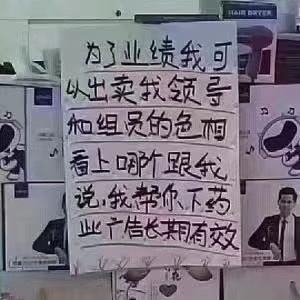 HAIR DRYER
为了业绩我可
以出卖我领导
和组员的色相
看上哪个跟我
说,我帮你下药
此广告长期有效